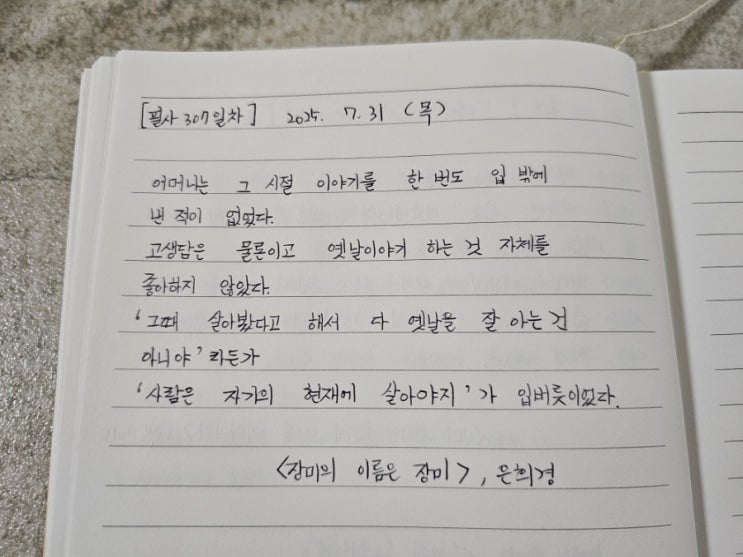 [필사 307일차] 2025. 7. 31 (목)
어머니는 그 시절 이야기를 한 번도 입 밖에
낸 적이 없었다.
고생담은 물론이고 옛날이야기 하는 것 자체를
좋아하지 않았다.
'그때 살아봤다고 해서 다 옛날을 잘 아는 건
아니야' 라든가
'사람은 자기의 현재에 살아야지' 가 입버릇이었다.
<장미의 이름은 장미>, 은희경